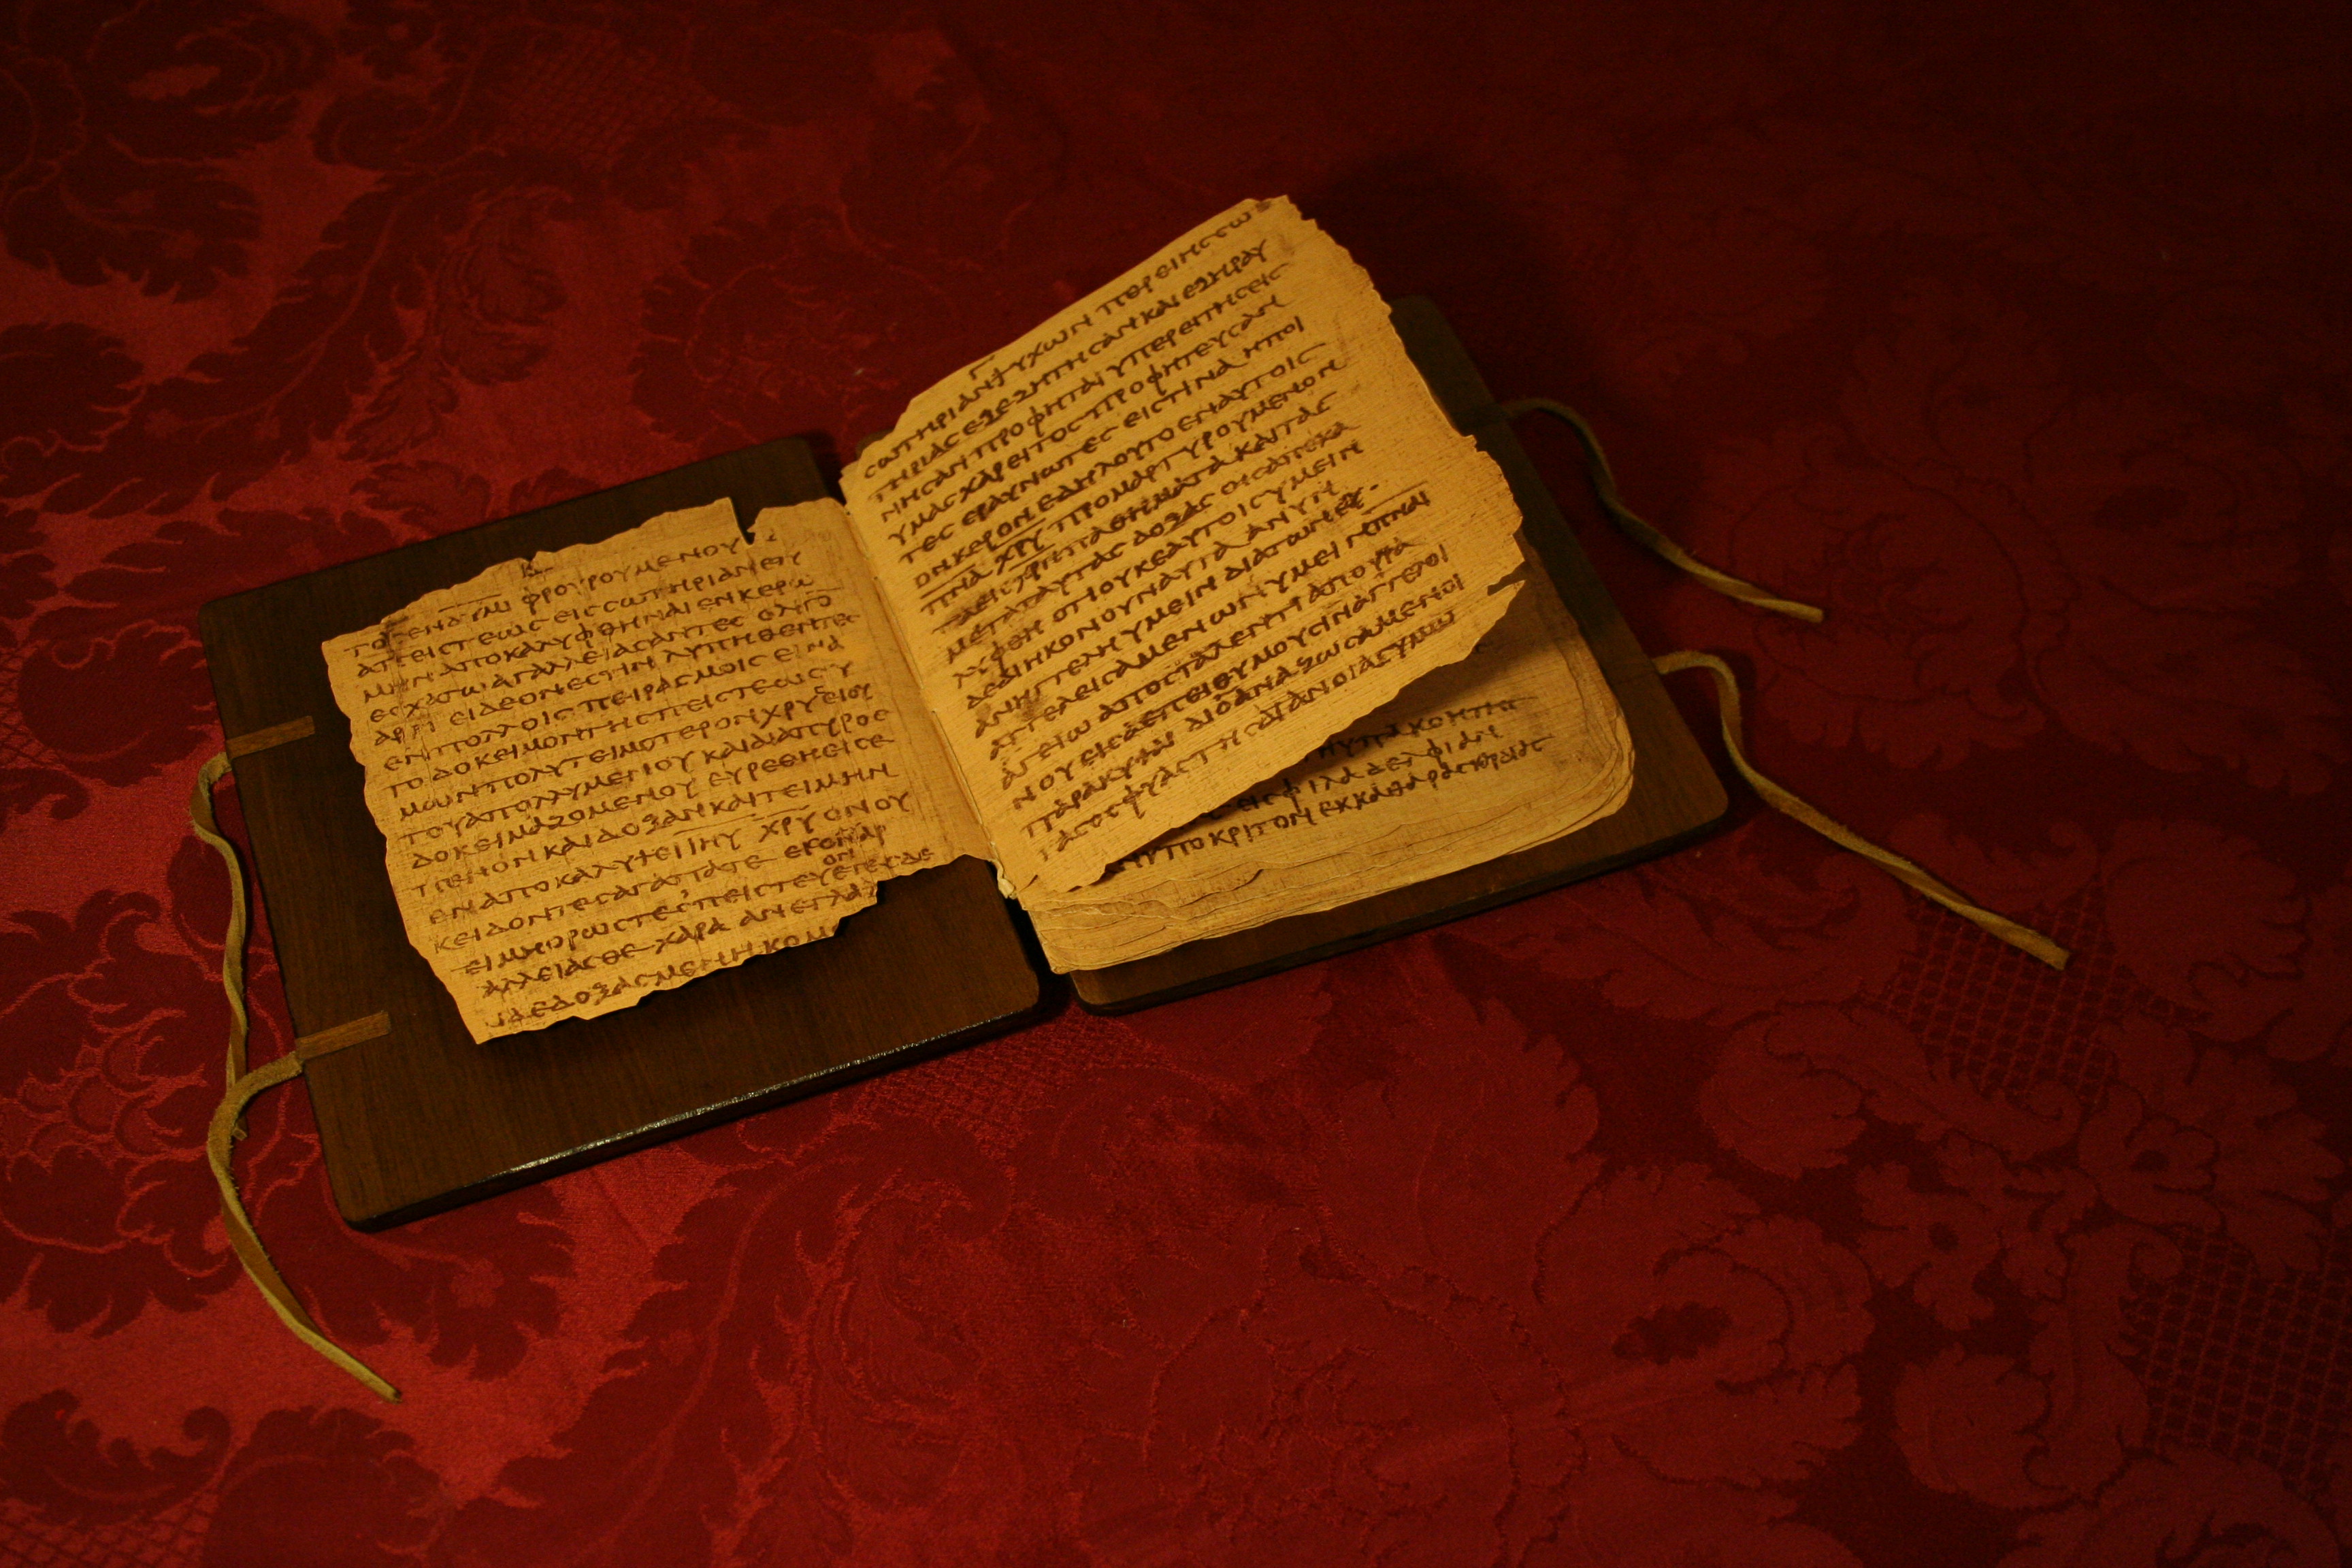 ΦΡΟΥΡΟΥΜΕΝΟΥ
ΑΠΕΙϹΤΕΩϹ ΕΙϹ ϹΩΤΗΡΙΑΝ ΕΤΥ
ΜΗΝ ΑΠΟΚΑΛΥΦΘΗΝΑΙ ΕΝ ΚΕΡΩ
ΕϹΧΑΤΩ ΑΓΑΛΛΕΙΑϹΑΝΤΕϹ ΟΛΙΓΟ
ΑΡΤΙ ΕΙ ΔΕΟΝ ΕϹΤΙΝ ΛΥΠΗΘΕΝΤΕϹ
ΕΝ ΠΟΛΛΟΙϹ ΠΕΙΡΑϹΜΟΙϹ ΕΙΝΑ
ΤΟ ΔΟΚΕΙΜΟΝ ΤΗϹ ΠΕΙϹΤΕΩϹ Υ
ΜΩΝ ΠΟΛΥΤΕΙΜΟΤΕΡΟΝ ΧΡΥϹΕΙΟΥ
ΤΟΥ ΑΠΟΛΛΥΜΕΝΟΥ ΚΑΙ ΔΙΑ ΠΥΡΟϹ
ΔΟΚΕΙΜΑΖΟΜΕΝΟΥ ΕΥΡΕΘΗ ΕΙϹ Ε
ΠΕΝΟΝ ΚΑΙ ΔΟΞΑΝ ΚΑΙ ΤΕΙΜΗΝ
ΕΝ ΑΠΟΚΑΛΥΨΕΙ ΙΗΥ ΧΡΥ ΟΝ ΟΥ
Κ ΕΙΔΟΝΤΕϹ ΑΓΑΠΑΤΕ
ΑΛΛΕΙΑϹΘΕ ΧΑΡΑ ΑΝΕΓΛΑ
ΔΕΔΟΞΑϹΜΕΝΗ ΚΟΜ
ϹΩΤΗΡΙΑΝ ΨΥΧΩΝ ΠΕΡΕΙ ΗϹ ϹΩ
ΤΗΡΙΑϹ ΕΞΕΖΗΤΗϹΑΝ ΚΑΙ ΕΞΗΡΑΥ
ΝΗϹΑΝ ΠΡΟΦΗΤΑΙ Υ ΠΕΡΕΙ ΤΗϹ ΕΙϹ
ΥΜΑϹ ΧΑΡΕΙΤΟϹ ΠΡΟΦΗΤΕΥϹΑΝ
ΤΕϹ ΕΡΑΥΝΩΝΤΕϹ ΕΙϹ ΤΙΝΑ Η ΠΟΙ
ΟΝ ΚΕΡΟΝ ΕΔΗΛΟΥΤΟ ΕΝ ΑΥΤΟΙϹ
ΠΝΑ ΧΡΥ ΠΡΟΜΑΡΤΥΡΟΥΜΕΝΟΝ
ΠΑΘΗΜΑΤΑ ΚΑΙ ΤΑϹ
ΜΕΤΑ ΤΑΥΤΑϹ ΔΟΞΑϹ ΟΙϹ ΑΠΕΚΑ
ΛΥΦΘΗ ΟΤΙ ΟΥΚ ΕΑΥΤΟΙϹ ΥΜΕΙΝ
ΔΕ ΔΙΗΚΟΝΟΥΝ ΑΥΤΑ Α ΝΥΝ
ΑΝΗΓΓΕΛΗ ΥΜΕΙΝ ΔΙΑ ΤΩΝ ΕΥ
ΑΓΓΕΛΕΙϹΑΜΕΝΩΝ ΥΜΕΙΝ ΠΝΑΙ
ΑΓΕΙΩ ΑΠΟϹΤΑΛΕΝΤΙ ΑΠ ΟΥΡΑ
ΝΟΥ ΕΙϹ Α ΕΠΕΙΘΥΜΟΥϹΙΝ ΑΓΓΕΛΟΙ
ΠΑΡΑΚΥΨΑΙ ΔΙΟ ΑΝΑΖΩϹΑΜΕΝΟΙ
ΤΑϹ ΟϹΦΥΑϹ ΤΗϹ ΔΙΑΝΟΙΑϹ ΥΜΩΝ
ΦΙΛΑΔΕΛΦΙΑΝ
ΑΝΥΠΟΚΡΙΤΟΝ ΕΚ ΚΑΘΑΡΑϹ ΚΑΡΔΙΑϹ